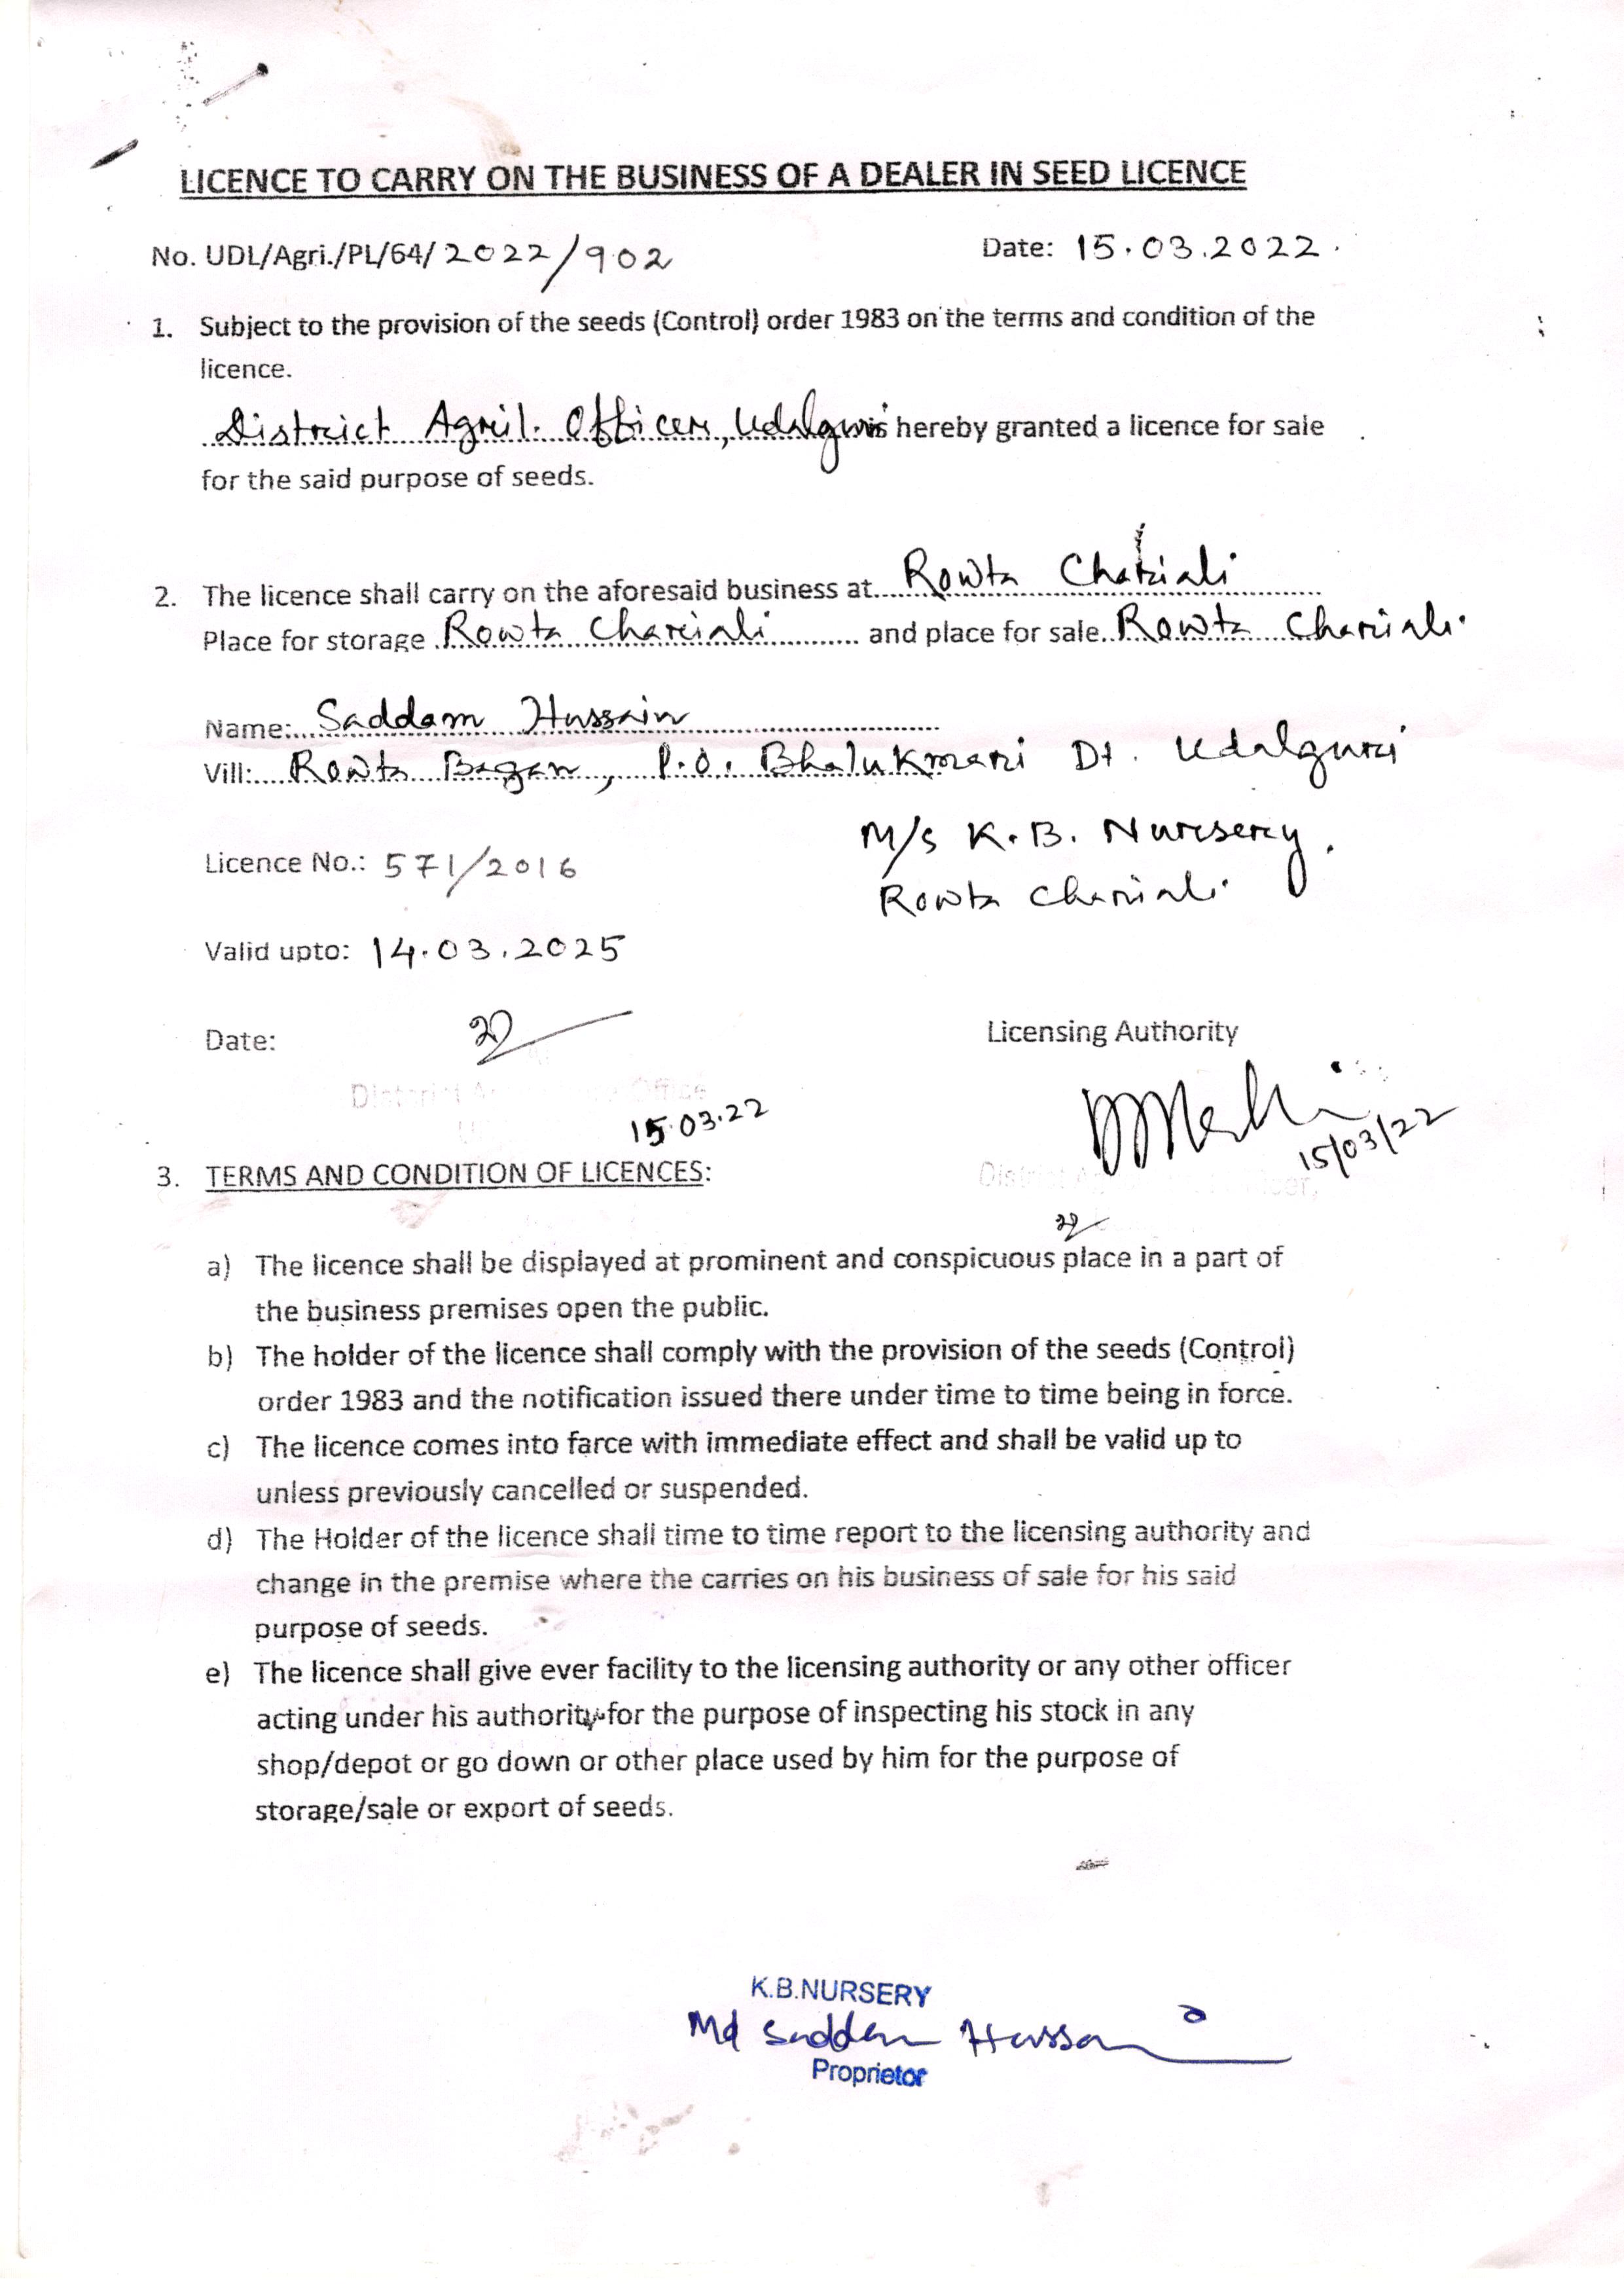 LICENCE TO CARRY ON THE BUSINESS OF A DEALER IN SEED LICENCE
No. UDL/Agri./PL/64/2022/902 Date: 15.03.2022.
1. Subject to the provision of the seeds (Control) order 1983 on the terms and condition of the
licence.
District Agril. Officer, Udalguri is hereby granted a licence for sale
for the said purpose of seeds.
2. The licence shall carry on the aforesaid business at Rowta Chariali
Place for storage Rowta Chariali and place for sale Rowta Chariali.
Name: Saddam Hussain
Vill: Rowta Bagan, P.O. Bhalukmari Dt. Udalguri
M/s K.B. Nursery.
Licence No.: 571/2016
Rowta Chariali.
Valid upto: 14.03.2025
Date: Licensing Authority
District Office
15.03.22
15/03/22
3. TERMS AND CONDITION OF LICENCES:
a) The licence shall be displayed at prominent and conspicuous place in a part of
the business premises open the public.
b) The holder of the licence shall comply with the provision of the seeds (Control)
order 1983 and the notification issued there under time to time being in force.
c) The licence comes into farce with immediate effect and shall be valid up to
unless previously cancelled or suspended.
d) The Holder of the licence shall time to time report to the licensing authority and
change in the premise where the carries on his business of sale for his said
purpose of seeds.
e) The licence shall give ever facility to the licensing authority or any other officer
acting under his authority for the purpose of inspecting his stock in any
shop/depot or go down or other place used by him for the purpose of
storage/sale or export of seeds.
K.B.NURSERY
Md Saddam Hussain
Proprietor